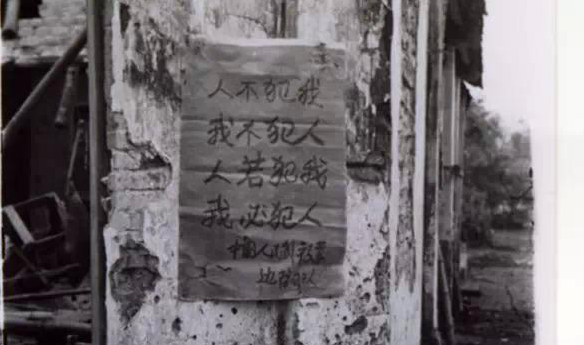 人不犯我
我不犯人
人若犯我
我必犯人
中国人民